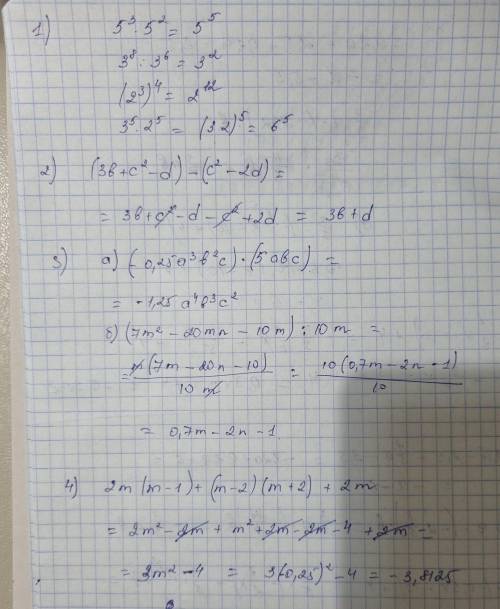 1) 5³ · 5² = 5⁵
3⁸ : 3⁶ = 3²
(2³)⁴ = 2¹²
3⁵ · 2⁵ = (3 2)⁵ = 6⁵
2) (3b + c² - d) - (c² - 2d) =
= 3b + c² - d - c² + 2d = 3b + d
3) а) (-0,25a³b²c) · (5abc) =
= -1,25a⁴b³c²
б) (7m² - 20mn - 10m) : 10m =
= m(7m - 20n - 10) / 10m = 10(0,7m - 2n - 1) / 10
= 0,7m - 2n - 1
4) 2m(m - 1) + (m - 2)(m + 2) + 2m
= 2m² - 2m + m² + 2m - 2m - 4 + 2m =
= 3m² - 4 = 3(-0,25)² - 4 = -3,8125